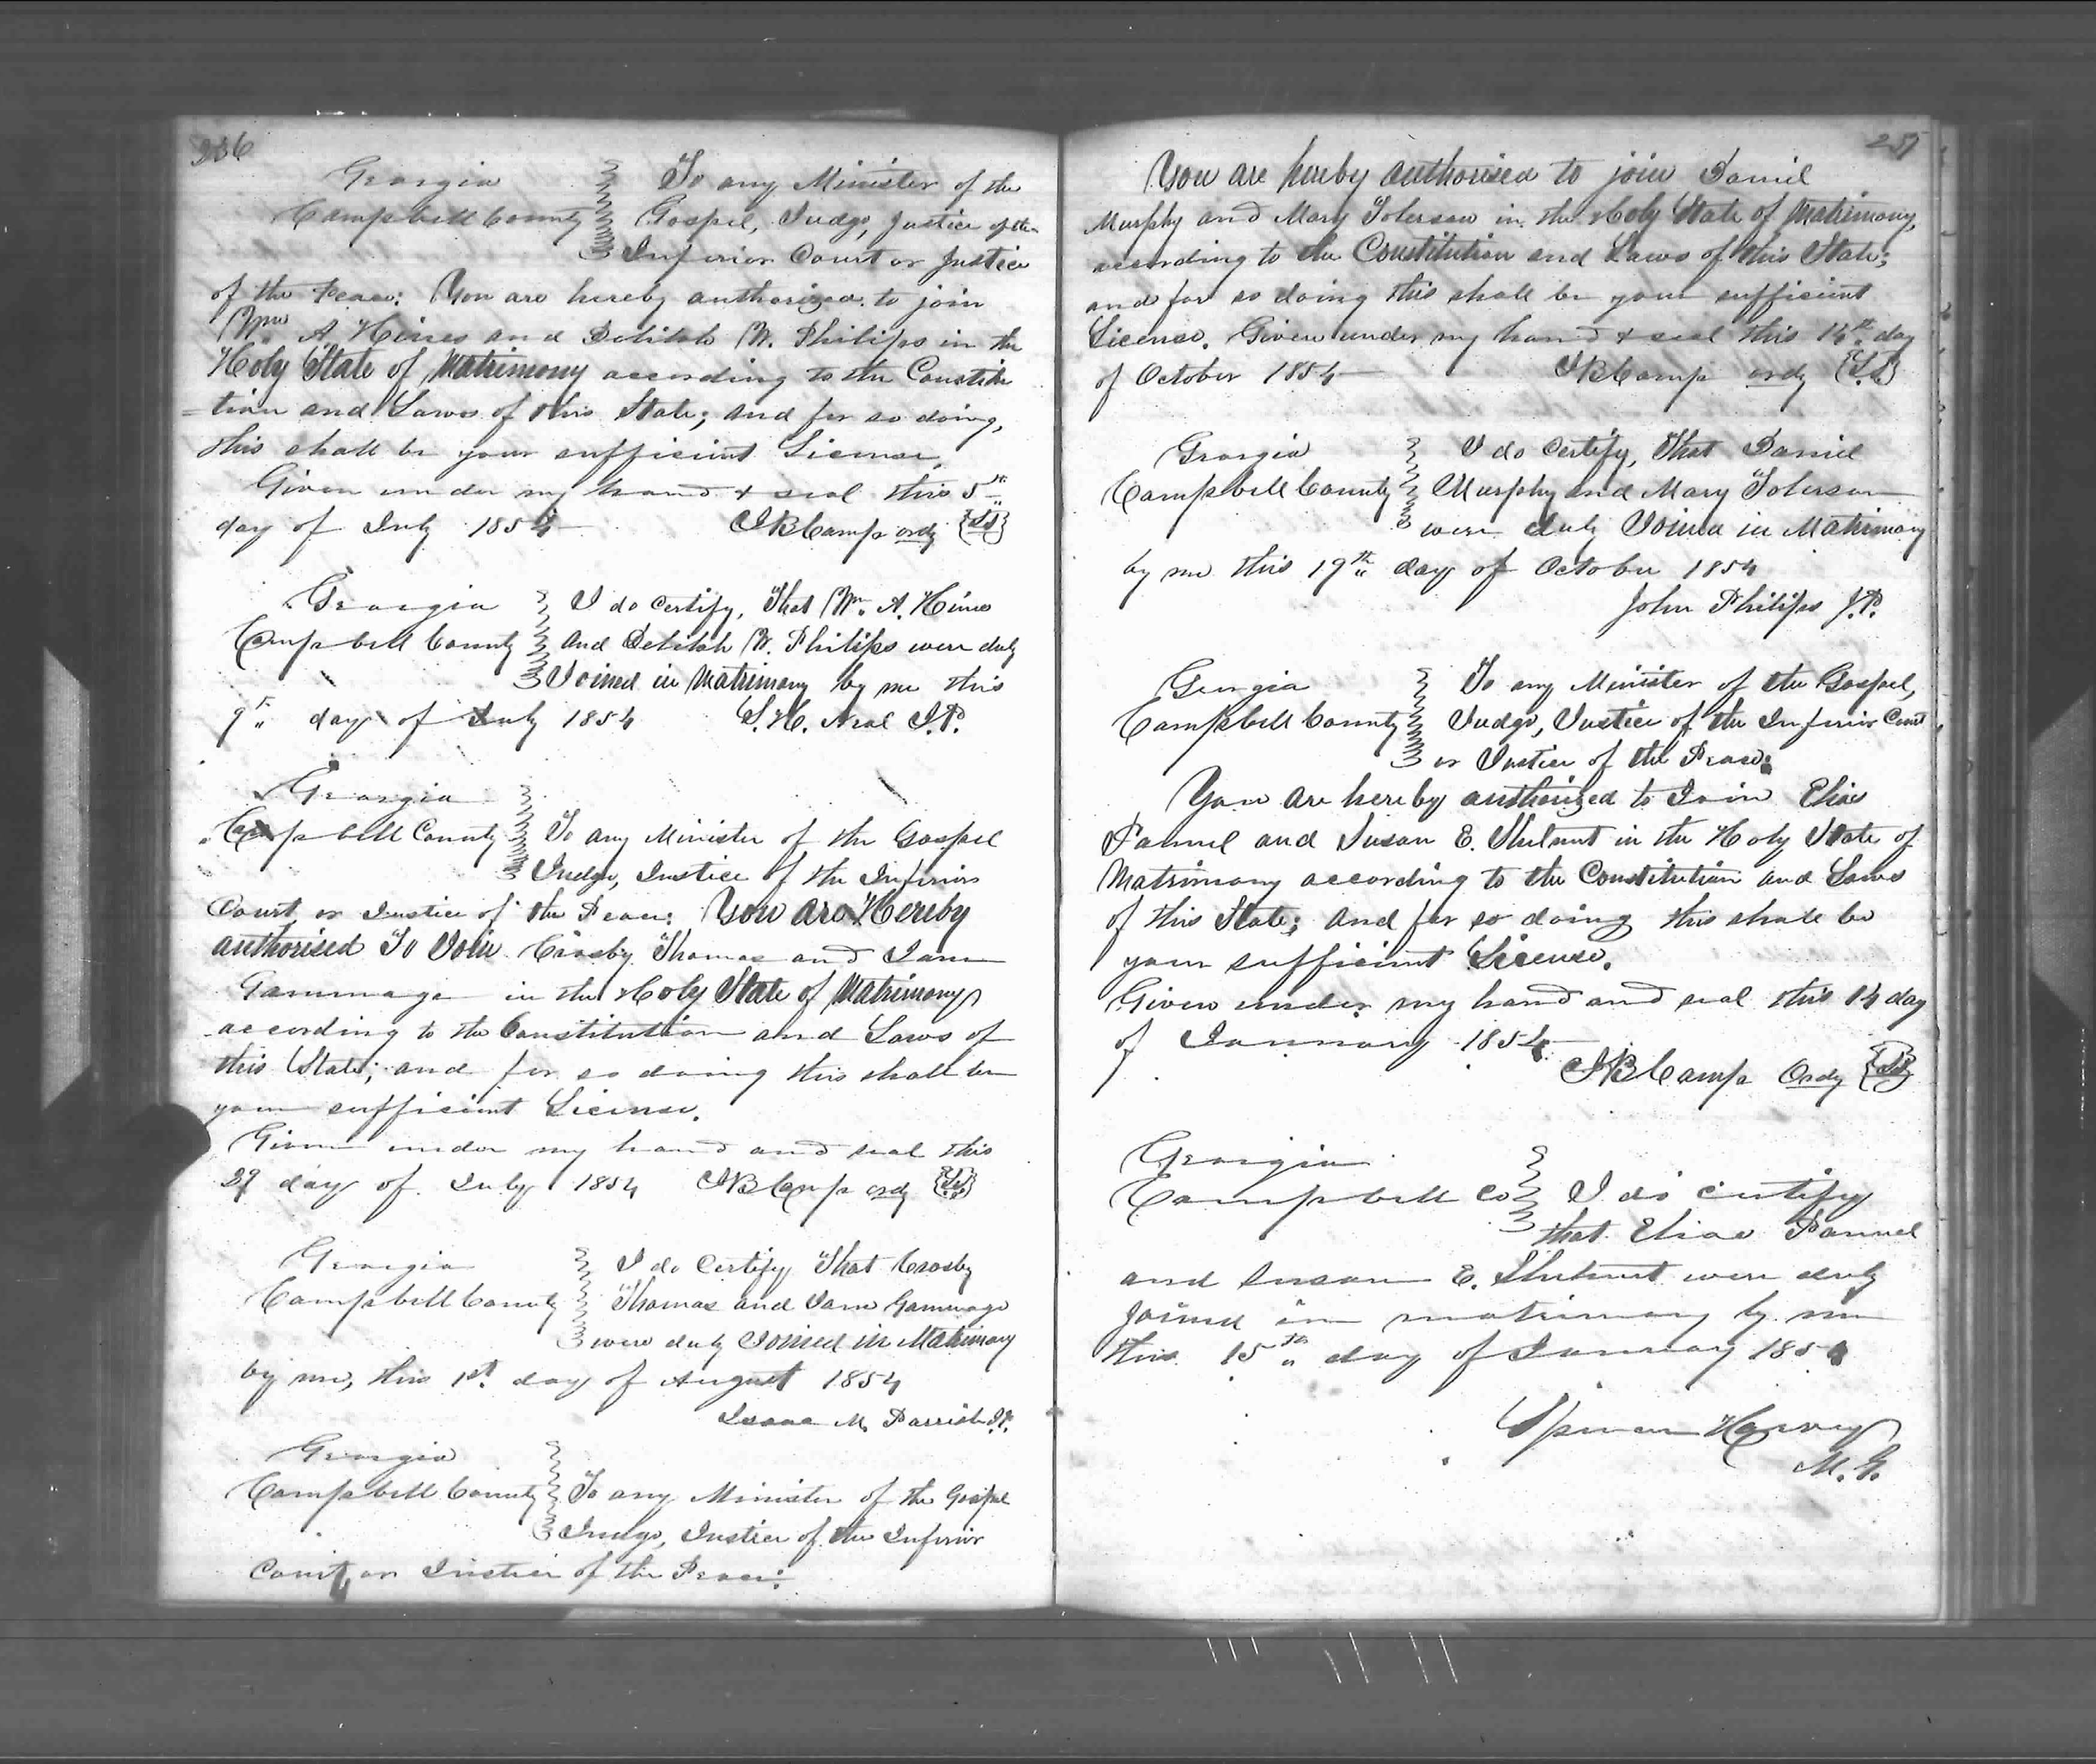 236
Georgia To any Minister of the
Campbell County Gospel, Judge, Justice of the
Inferior Court or Justice
of the Peace: You are hereby authorized to join
Wm A Hines and Delilah W. Philips in the
Holy State of Matrimony according to the Constitu
=tion and Laws of this State; and for so doing,
this shall be your sufficient License,
Given under my hand & seal this 5th
day of July 1854 JB Camp ordy {LS}
Georgia I do Certify, That Wm. A. Hines
Campbell County and Delilah W. Philips were duly
Joined in Matrimony by me this
9th day of July 1854 S. H. Neal J.P.
Georgia
Campbell County To any Minister of the Gospel
Judge, Justice of the Inferior
Court, or Justice of the Peace: You are Hereby
authorised To Join Crosby Thomas and Jane
Gammage in the Holy State of Matrimony
according to the Constitution and Laws of
this State; and for so doing this shall be
your sufficient License.
Given under my hand and seal this
29 day of July 1854 JB Camp ordy {LS}
Georgia I do Certify That Crosby
Campbell County Thomas and Jane Gammage
were duly Joined in Matrimony
by me, this 1st day of August 1854
Isaac M. Parrish J.P.
Georgia
Campbell County To any Minister of the Gospel
Judge, Justice of the Inferior
Court, or Justice of the Peace:
237
You are hereby authorised to join Daniel
Murphy and Mary Tolerson in the Holy State of Matrimony,
according to the Constitution and Laws of this State;
and for so doing this shall be your sufficient
License. Given under my hand & seal this 14th day
of October 1854 JB Camp ordy {LS}
Georgia I do Certify, That Daniel
Campbell County Murphy and Mary Tolerson
were duly Joined in Matrimony
by me this 19th day of October 1854
John Philips J.P.
Georgia To any Minister of the Gospel,
Campbell County Judge, Justice of the Inferior Court
or Justice of the Peace:
You are hereby authorized to Join Elias
Pannel and Susan E. Shelnut in the Holy State of
Matrimony according to the Constitution and Laws
of this State; and for so doing this shall be
your sufficient License.
Given under my hand and seal this 14 day
of January 1854
JB Camp Ordy {LS}
Georgia
Campbell Co I do certify
that Elias Pannel
and Susan E. Shelnut were duly
joined in matrimony by me
this 15th day of January 1854
Harvey
M.G.